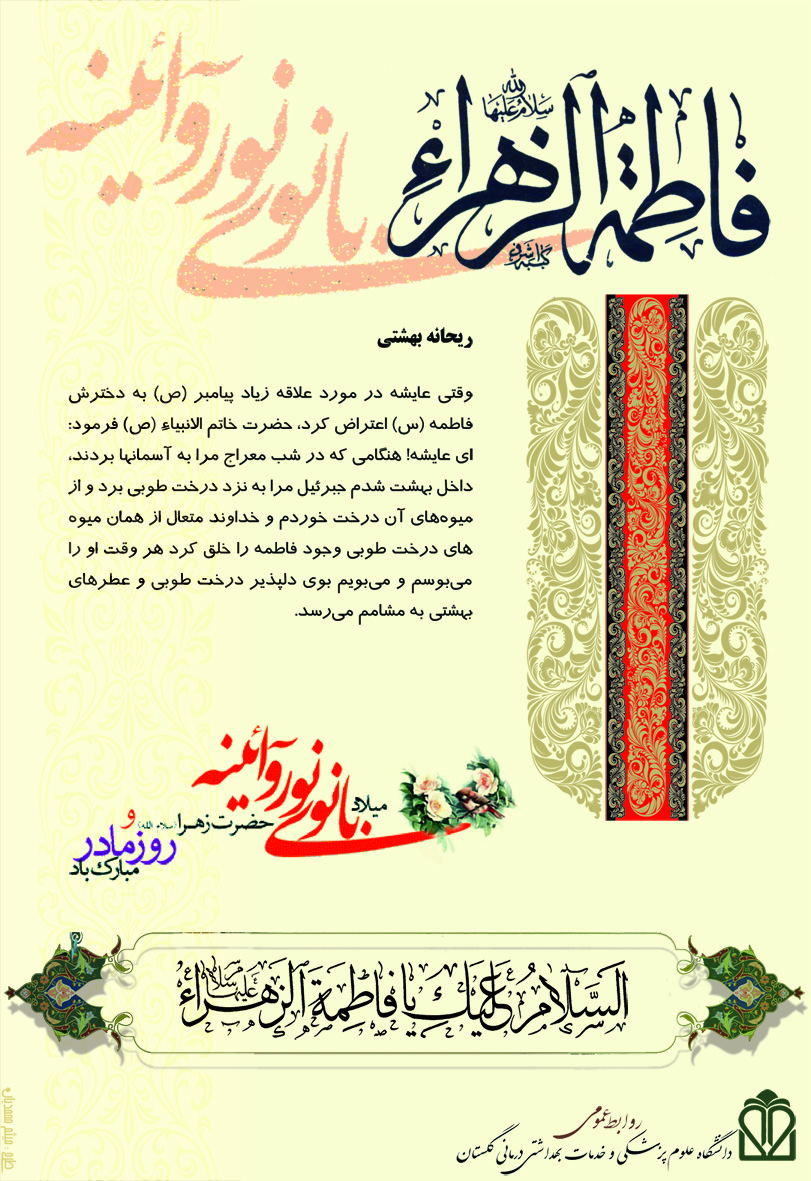 فاطِمَةُ الزهراءِ
سلامُ اللهِ علیها
بانوی نور و آئینه
ریحانه بهشتی
وقتی عایشه در مورد علاقه زیاد پیامبر (ص) به دخترش
فاطمه (س) اعتراض کرد، حضرت خاتم الانبیاءِ (ص) فرمود:
ای عایشه! هنگامی که در شب معراج مرا به آسمانها بردند،
داخل بهشت شدم جبرئیل مرا به نزد درخت طوبی برد و از
میوه‌های آن درخت خوردم و خداوند متعال از همان میوه
های درخت طوبی وجود فاطمه را خلق کرد هر وقت او را
می‌بوسم و می‌بویم بوی دلپذیر درخت طوبی و عطرهای
بهشتی به مشامم می‌رسد.
میلاد
بانوی نور و آئینه
حضرت زهرا (سلام الله) و
روز مادر
مبارک باد
اَلسَّلامُ عَلَیكِ یا فاطِمَةَ الزَهراءِ
سلامُ اللهِ علیها
روابط عمومی
دانشگاه علوم پزشکی و خدمات بهداشتی درمانی گلستان